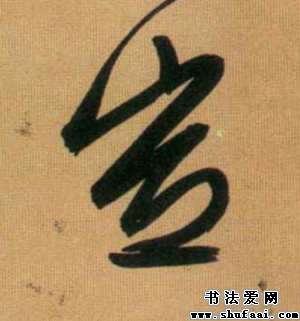 豈
书法爱网
www.shufaai.com